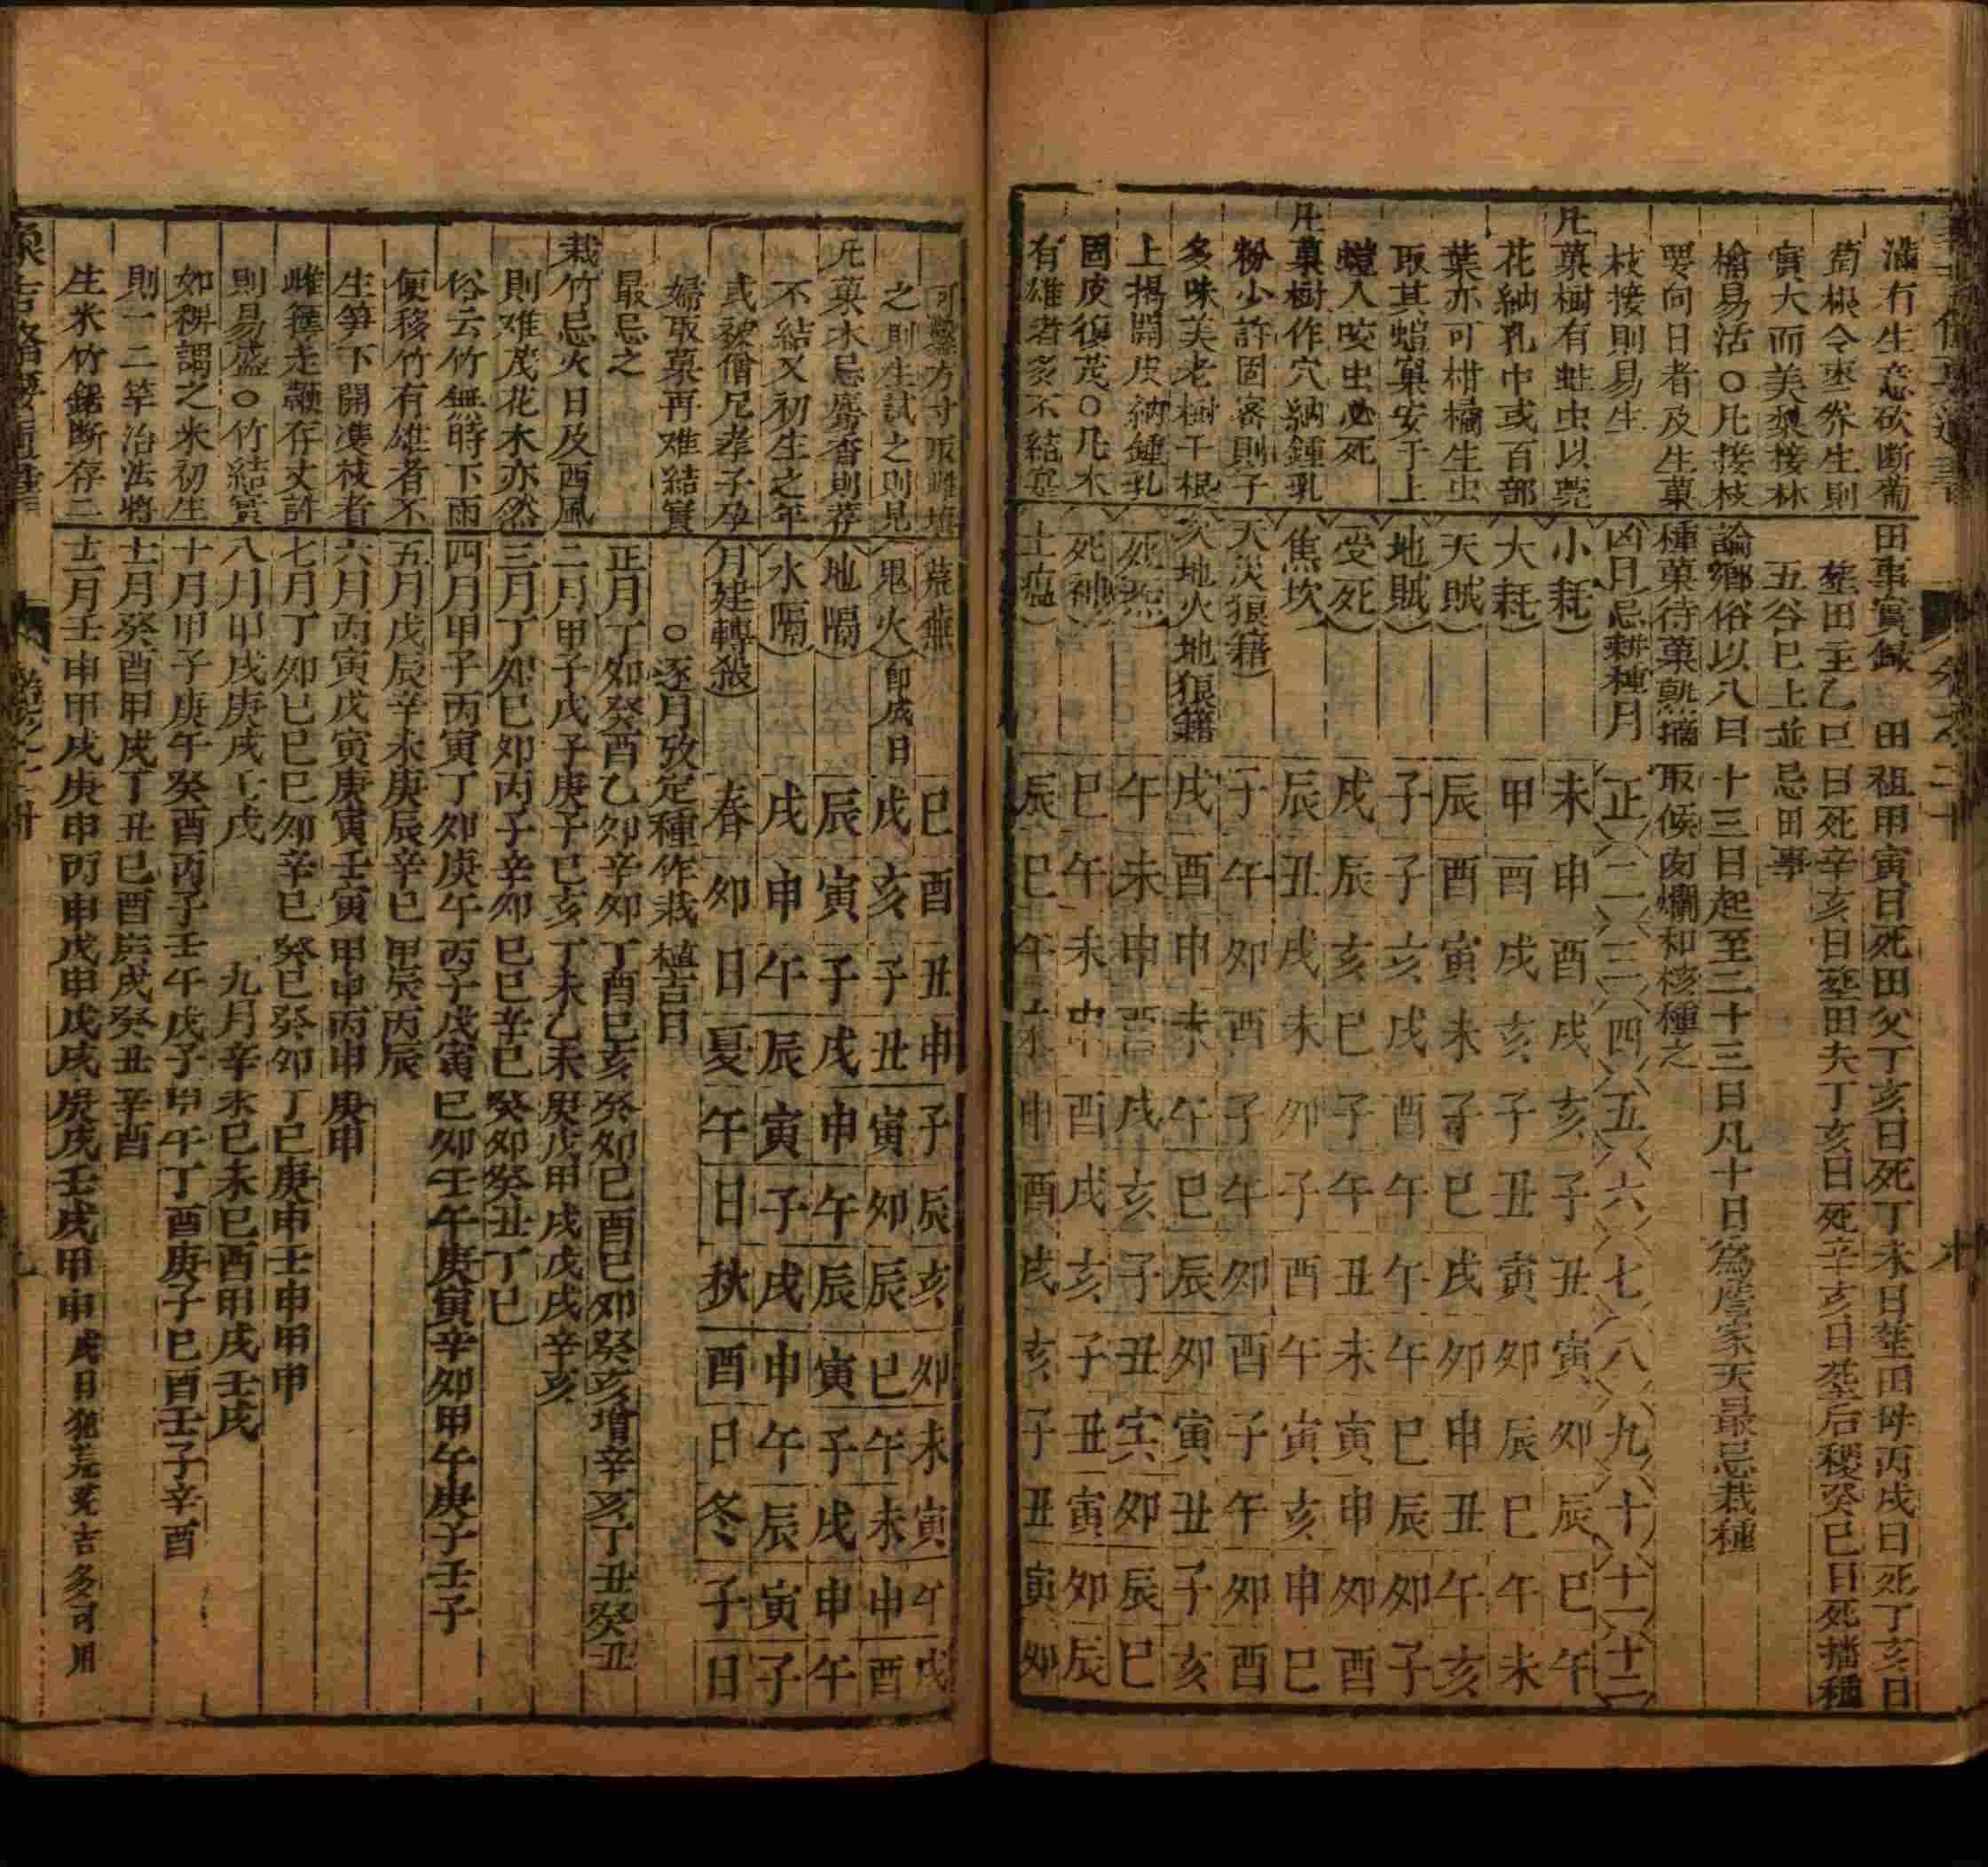 滿有生意砍斷葡
萄根令棗糸生則
實大而美梨接林
檎易活○凡接枝
要向日者及生菓
枝接則易生
凡菓樹有蛀虫以莞
花納孔中或百部
葉亦可柑橘生虫
取其螘窠安于上
螘人咬虫必死
凡菓樹作穴納鍾乳
粉少許固密則子
多味美老樹于根
上揭開皮納鍾乳
固皮復茂○凡木
有雄者多不結寔
田事實録 田祖甲寅日死田父丁亥日死丁未日塟田母丙戌日死丁亥日
塟田主乙巳日死辛亥日塟田夫丁亥日死辛亥日塟后稷癸巳日死播種
五谷已上並忌田事
論鄉俗以八日十三日起至二十三日凡十日為農家天最忌栽種
種菓待菓熟摘取候肉爛和核種之
凶日忌耕種月 正 二 三 四 五 六 七 八 九 十 十一 十二
小耗 未 申 酉 戌 亥 子 丑 寅 卯 辰 巳 午
大耗 申 酉 戌 亥 子 丑 寅 卯 辰 巳 午 未
天賊 辰 酉 寅 未 子 巳 戌 卯 申 丑 午 亥
地賊 子 子 亥 戌 酉 午 午 午 巳 辰 卯 子
受死 戌 辰 亥 巳 子 午 丑 未 寅 申 卯 酉
焦坎 辰 丑 戌 未 卯 子 酉 午 寅 亥 申 巳
天災狼籍 子 午 卯 酉 子 午 卯 酉 子 午 卯 酉
次地火地狼籍 戌 酉 申 未 午 巳 辰 卯 寅 丑 子 亥
死炁 午 未 申 酉 戌 亥 子 丑 寅 卯 辰 巳
死神 巳 午 未 申 酉 戌 亥 子 丑 寅 卯 辰
土瘟 辰 巳 午 未 申 酉 戌 亥 子 丑 寅 卯
可鑿方寸取雌填
之則生試之則見
凡菓木忌麝香則荐
不結又初生之年
或被僧尼孝子孕
婦取菓再难結實
最忌之
栽竹忌火日及西風
則难茂花木亦然
俗云竹無時下雨
便移竹有雄者不
生笋下開凄枝者
雌種走顙存丈許
則易盛○竹結實
如稗謂之米初生
則一二竿治法將
生米竹鋸断存二
荒蕪 巳 酉 丑 申 子 辰 亥 卯 未 寅 午 戌
鬼火 即成日 戌 亥 子 丑 寅 卯 辰 巳 午 未 申 酉
地隔 辰 寅 子 戌 申 午 辰 寅 子 戌 申 午
水隔 戌 申 午 辰 寅 子 戌 申 午 辰 寅 子
月建轉殺 春卯日 夏午日 秋酉日 冬子日
○逐月攷定種作栽植吉日
正月丁卯癸酉乙卯辛卯丁酉巳亥癸卯巳酉巳卯癸亥增辛亥丁丑癸丑
二月甲子戊子庚子巳亥丁未乙未庚戌甲戌戊戌辛亥
三月丁卯巳卯丙子辛卯巳巳辛巳癸卯癸丑丁巳
四月甲子丙寅丁卯庚午丙子戊寅巳卯壬午庚寅辛卯甲午庚子壬子
五月戊辰辛未庚辰辛巳甲辰丙辰
六月丙寅戊寅庚寅壬寅甲申丙申庚申
七月丁卯巳巳巳卯辛巳癸巳癸卯丁巳庚申壬申甲申
八月甲戌庚戌壬戌 九月辛未巳未巳酉甲戌壬戌
十月甲子庚午癸酉丙子壬午戊子甲午丁酉庚子巳酉壬子辛酉
十一月癸酉甲戌丁丑巳酉庚戌癸丑辛酉
十二月壬申甲戌庚申丙申戊申戊戌庚戌壬戌甲申戌日犯荒蕪吉多可用